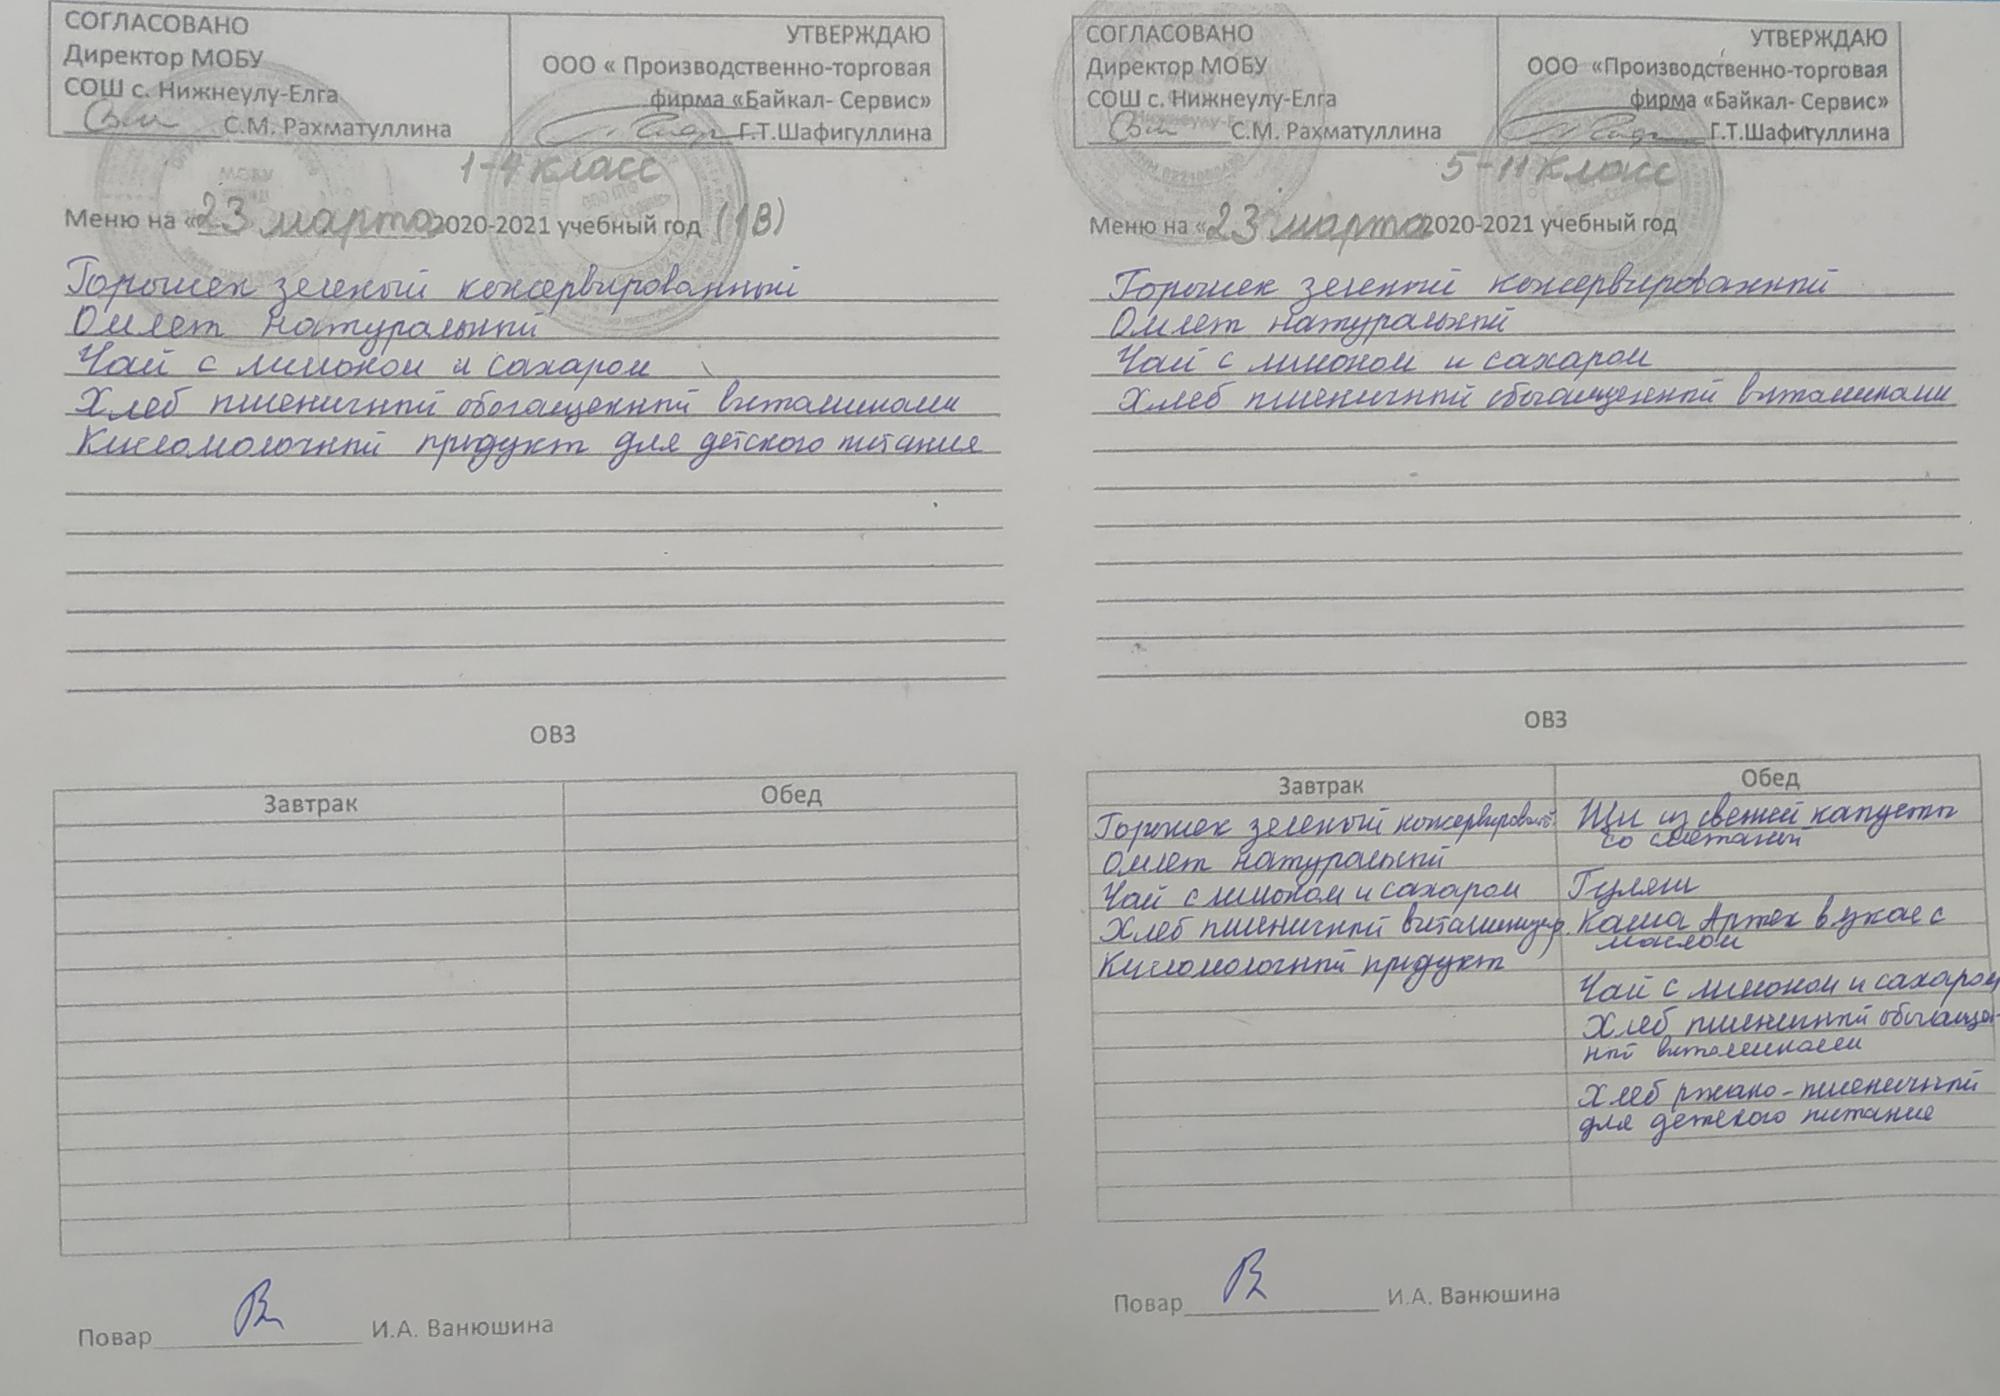 СОГЛАСОВАНО
Директор МОБУ
СОШ с. Нижнеулу-Елга
С.М. Рахматуллина
УТВЕРЖДАЮ
ООО « Производственно-торговая
фирма «Байкал- Сервис»
Г.Т.Шафигуллина
1-4 класс
Меню на «23 марта 2020-2021 учебный год (1В)
Горошек зеленый консервированный
Омлет натуральный
Чай с лимоном и сахаром
Хлеб пшеничный обогащенный витаминами
Кисломолочный продукт для детского питания
ОВЗ
Завтрак Обед
Повар И.А. Ванюшина
СОГЛАСОВАНО
Директор МОБУ
СОШ с. Нижнеулу-Елга
С.М. Рахматуллина
УТВЕРЖДАЮ
ООО «Производственно-торговая
фирма «Байкал- Сервис»
Г.Т.Шафигуллина
5-11 класс
Меню на «23 марта 2020-2021 учебный год
Горошек зеленый консервированный
Омлет натуральный
Чай с лимоном и сахаром
Хлеб пшеничный обогащенный витаминами
ОВЗ
Завтрак
Горошек зеленый
Омлет натуральный
Чай с лимоном и сахаром
Хлеб пшеничный
Кисломолочный продукт
Обед
Щи из свежей капусты
со сметаной
Гуляш
Каша Артек вязкая с
маслом
Чай с лимоном и сахаром
Хлеб пшеничный обогащен-
ный витаминами
Хлеб ржано-пшеничный
для детского питание
Повар И.А. Ванюшина